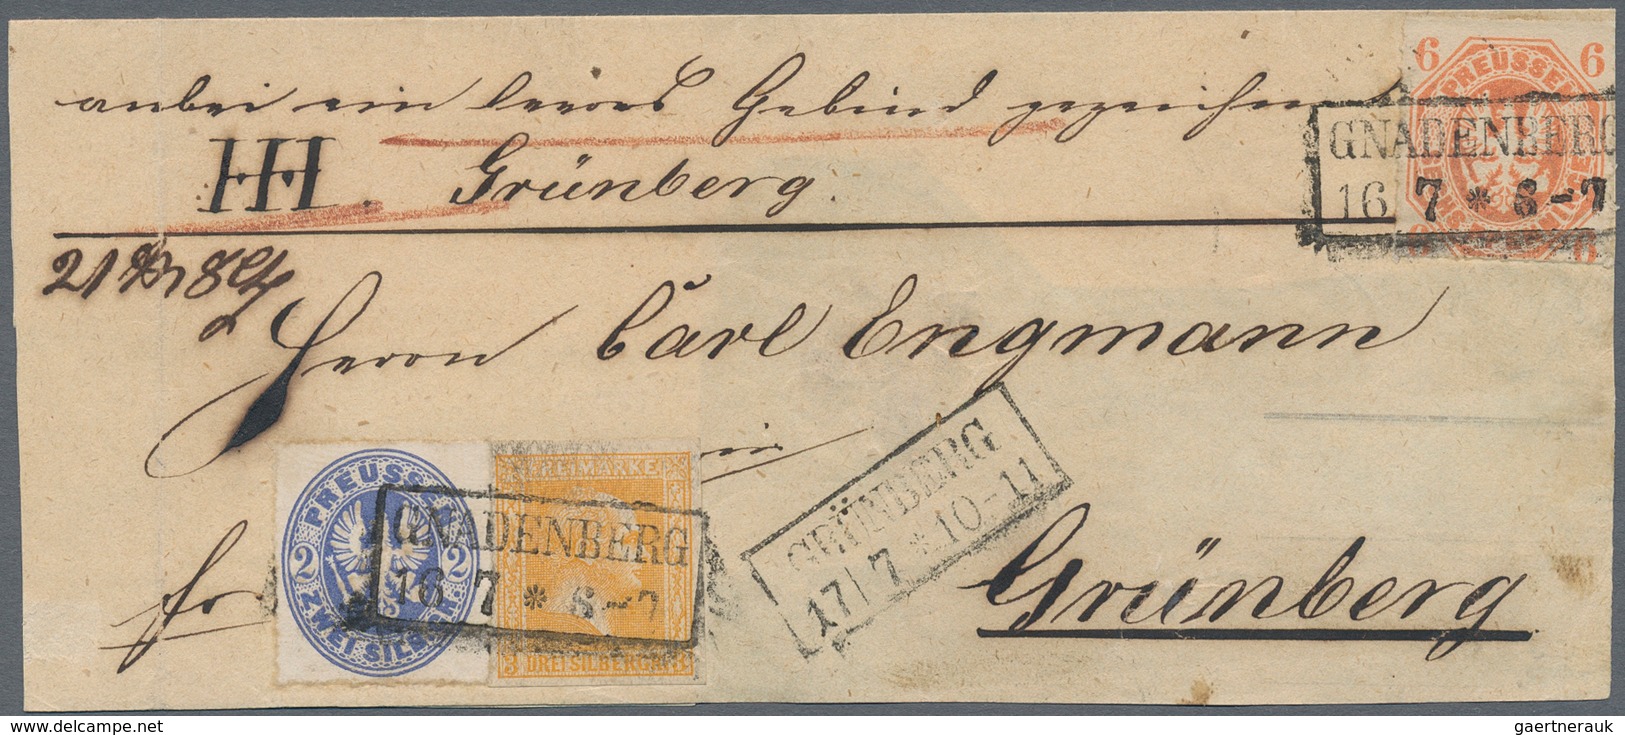 anbei ein leeres Gebind gezeichnet
HH. Grünberg.
6 6
PREUSSEN
SECHS PFENNIGE
6 6
GNADENBERG
16 7 * 6-7
Herrn Carl Engmann
in
Grünberg
fr
PREUSSEN
2 2
ZWEI SILBERGR.
FREIMARKE
3 DREI SILBERGR. 3
GNADENBERG
16 7 * 6-7
GRÜNBERG
17/7 * 10-11
www.delcampe.net
gaertnerauk